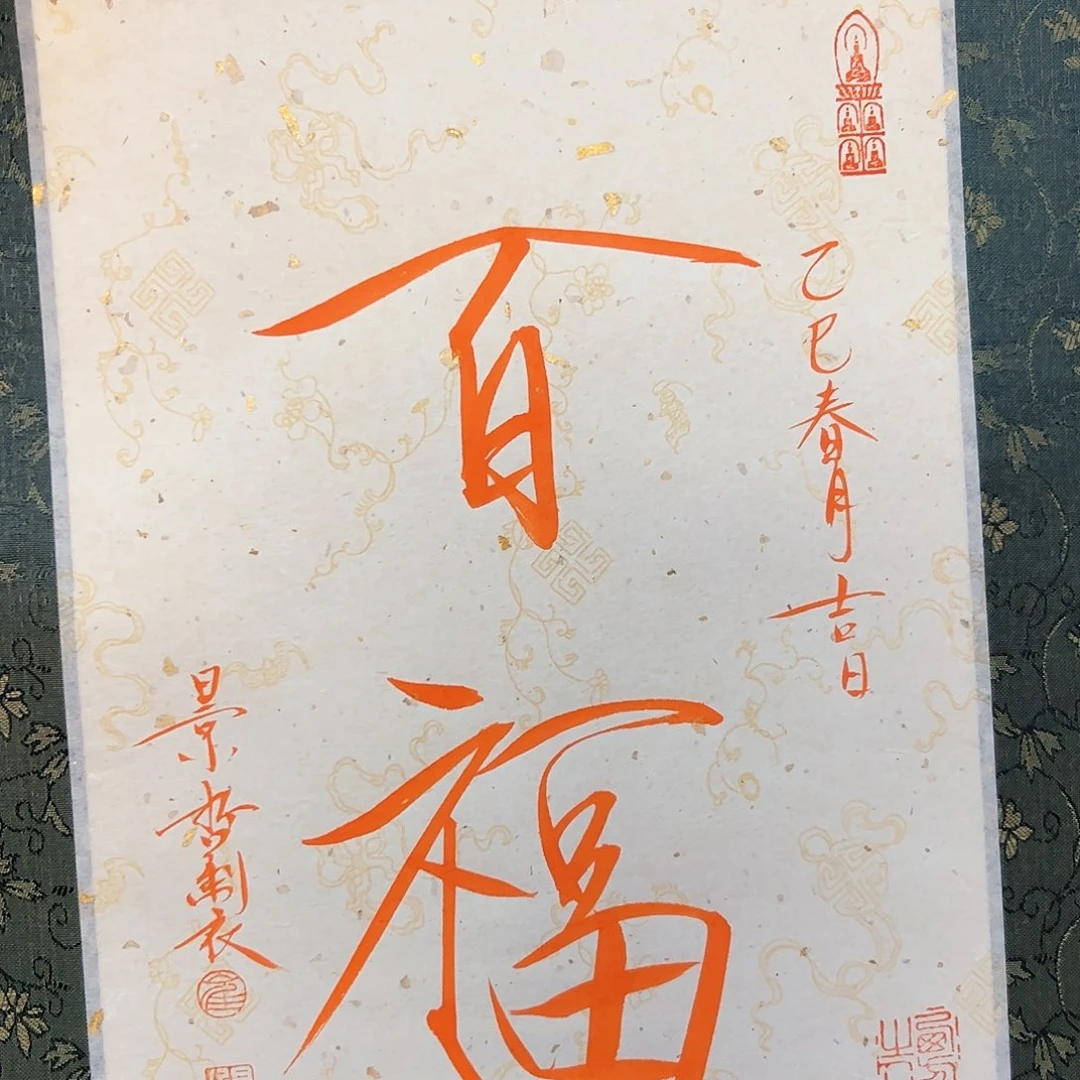 乙巳春月吉日
百福
景
制衣